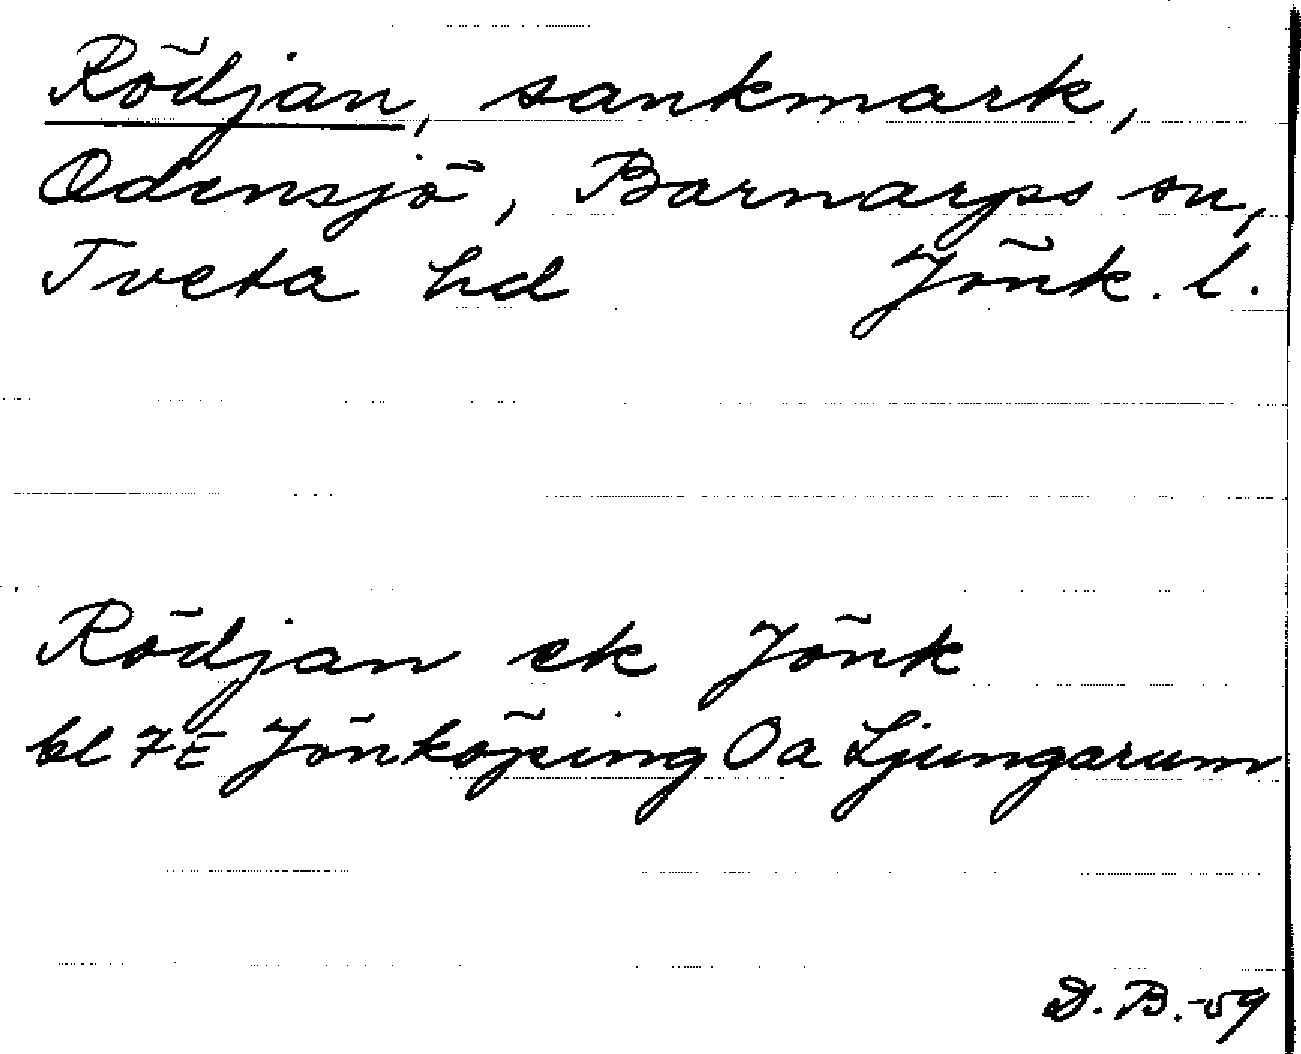 Rödjan, sankmark,
Odensjö, Barnarps sn,
Tveta hd Jönk. l.
Rödjan ek Jönk
bl 7E Jönköping Oa Ljungarum
D. B. -59